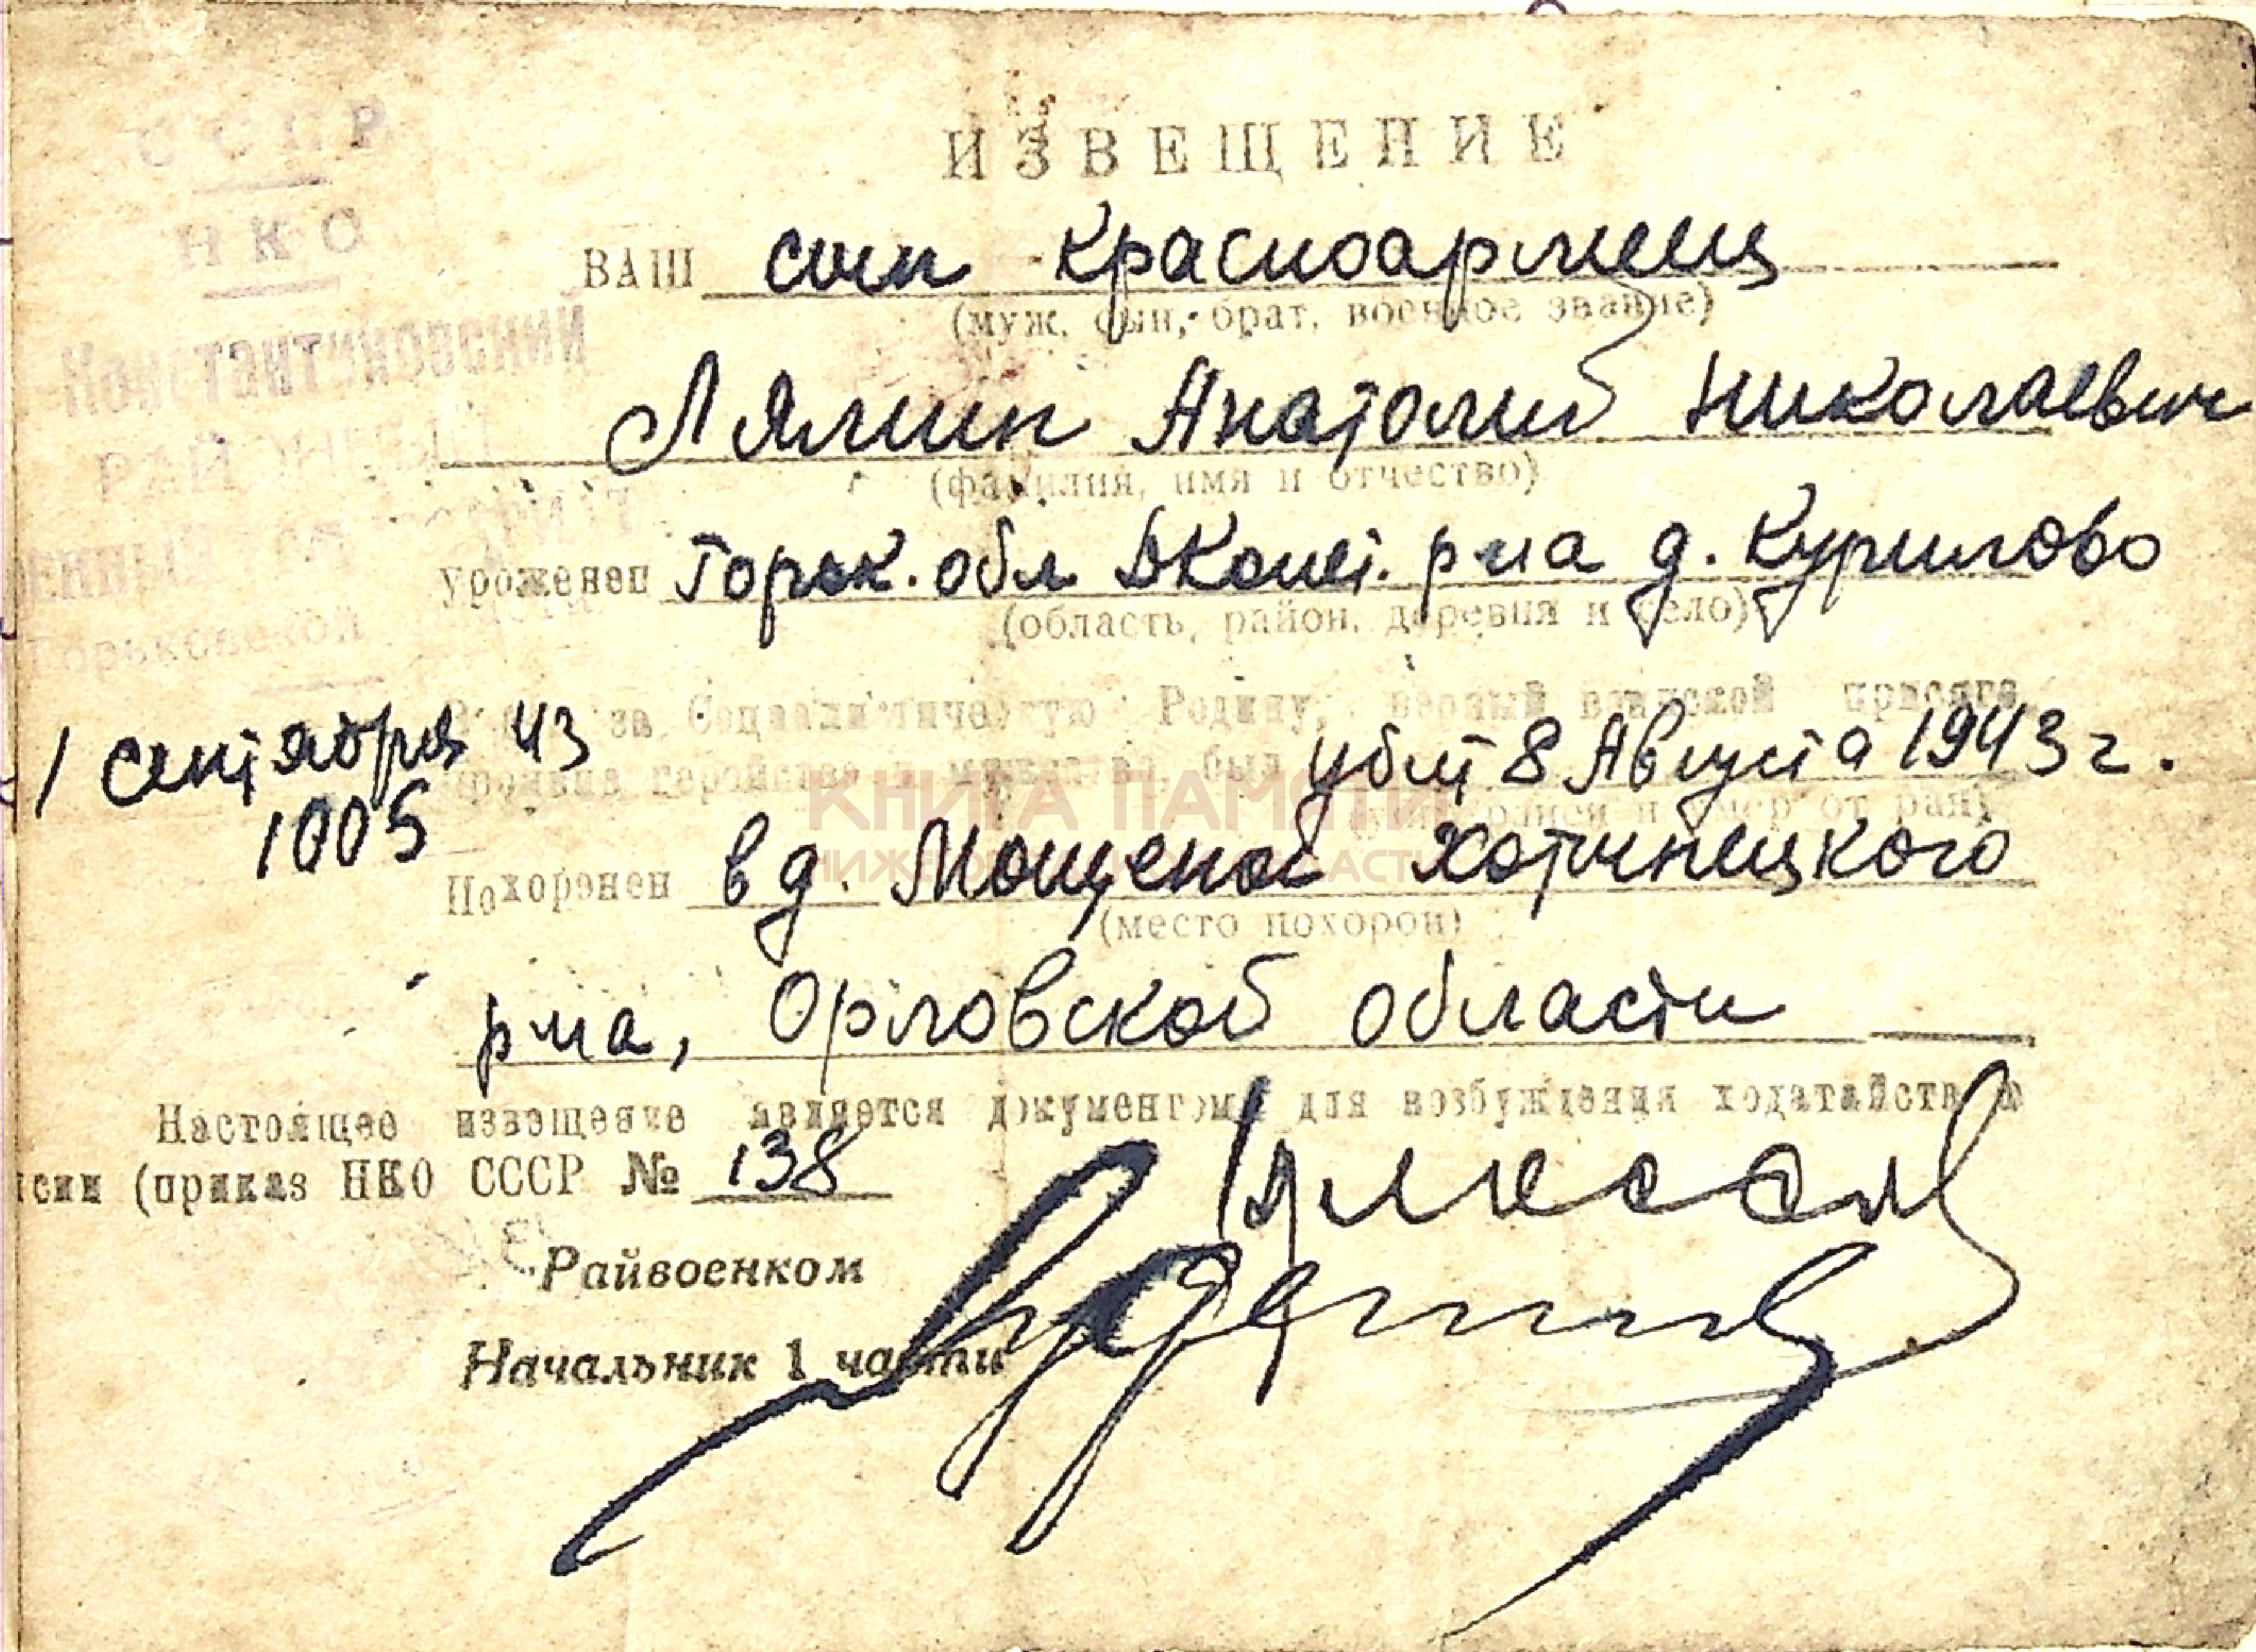 СССР
НКО
-Константиновский
РАЙ
Горьковской
1 сентября 43
1005
ИЗВЕЩЕНИЕ
ВАШ сын красноармеец
(муж, сын, брат, военное звание)
Лямин Анатолий Николаевич
(фамилия, имя и отчество)
уроженец Горьк. обл ДКонст. р-на д. Курилово
(область, район, деревня и село)
за Социалистическую Родину, верный воинской присяге,
проявив геройство и мужество, был убит 8 Августа 1943 г.
ранен и умер от ран)
КНИГА ПАМЯТИ
НИЖЕГОРОДСКОЙ ОБЛАСТИ
Похоронен в д. Мощеной Хотынецкого
(место похорон)
р-на, Орловской области
Настоящее извещение является документом для возбуждения ходатайства о
нсии (приказ НКО СССР № 138
Райвоенком
Начальник 1 части